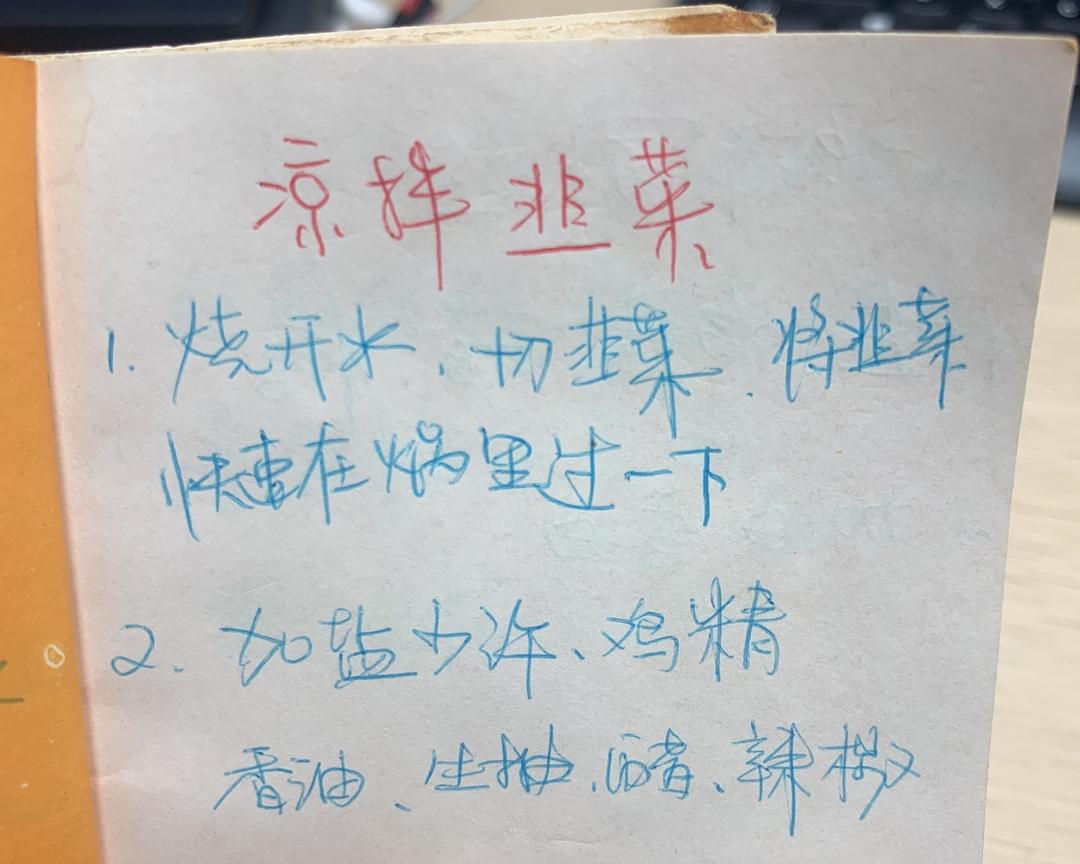 凉拌韭菜
1. 烧开水，切韭菜.将韭菜
快速在焖里过一下
2. 加盐少许、鸡精
香油、生抽、醋、辣椒